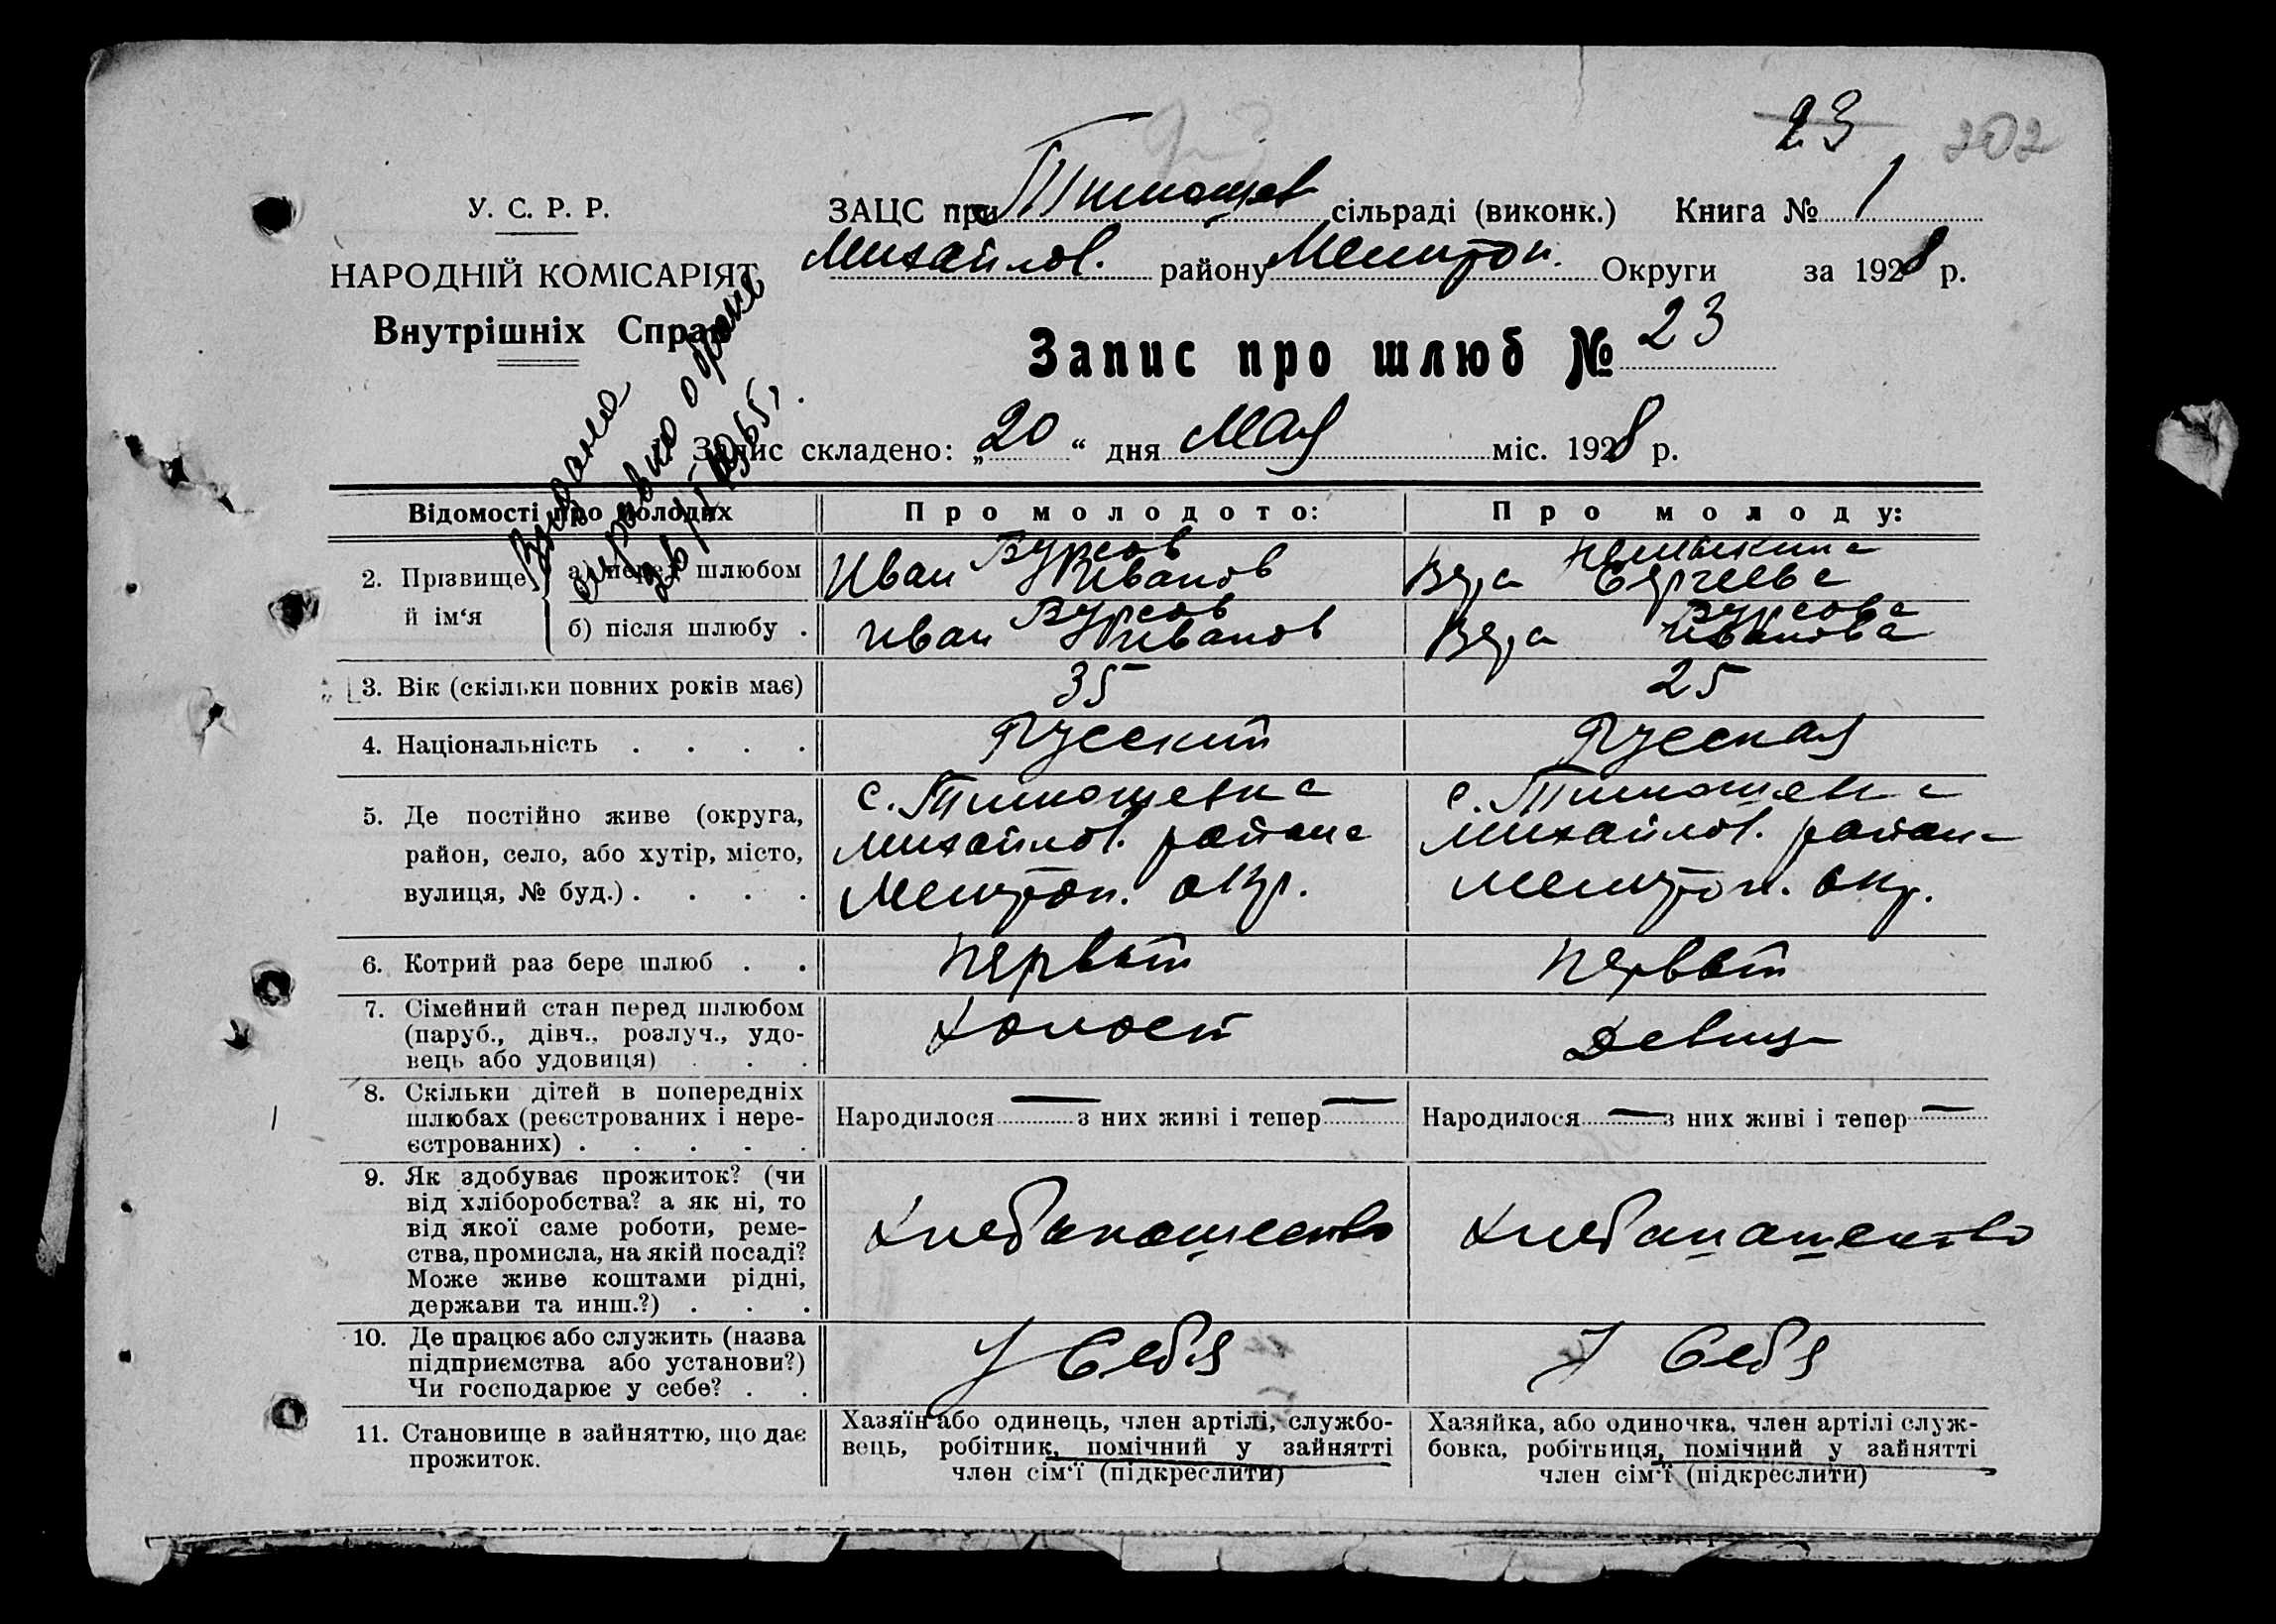 23 202
У. С. Р. Р.
ЗАЦС при Тимошев сільраді (виконк.) Книга № 1
НАРОДНІЙ КОМІСАРІЯТ
Михайлов. району Мелитоп. Округи за 1928 р.
Внутрішніх Справ
Запис про шлюб № 23
Запис складено: „20“ дня Мая міс. 1928 р.
Выдана
справка о браке
1965г.
Відомості про молодих Про молодого: Про молоду:
2. Прізвище й ім‘я
а) перед шлюбом Бурсов Иван Иванов Вера Сергеева
б) після шлюбу . Бурсов Иван Иванов Бурсова Вера Иванова
3. Вік (скільки повних років має) 35 25
4. Національність . . . . Русский Русская
5. Де постійно живе (округа, с. Тимошевка с. Тимошевка
район, село, або хутір, місто, Михайлов. района Михайлов. района
вулиця, № буд.) . . . . Мелитоп. окр. Мелитоп. окр.
6. Котрий раз бере шлюб . . первый первый
7. Сімейний стан перед шлюбом Холост Девица
(паруб., дівч., розлуч., удо-
вець або удовиця) . . .
8. Скільки дітей в попередніх
шлюбах (реєстрованих і нере- Народилося — з них живі і тепер — Народилося — з них живі і тепер —
єстрованих) . . . . .
9. Як здобуває прожиток? (чи
від хліборобства? а як ні, то
від якої саме роботи, реме- Хлебопашество Хлебапашество
ства, промисла, на якій посаді?
Може живе коштами рідні,
держави та инш.?) . . .
10. Де працює або служить (назва У себя У себя
підприємства або установи?)
Чи господарює у себе? . .
11. Становище в зайняттю, що дає
прожиток.
Хазяїн або одинець, член артілі, службо-
вець, робітник, помічний у зайнятті
член сім‘ї (підкреслити)
Хазяйка, або одиночка, член артілі служ-
бовка, робітниця, помічний у зайнятті
член сім‘ї (підкреслити)